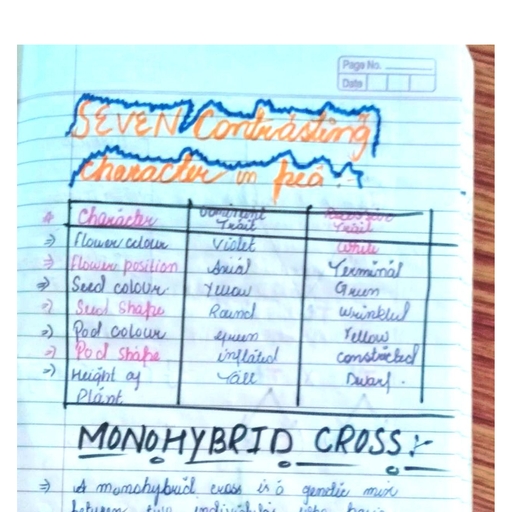 Page No.
Date
SEVEN Contrasting
character in pea :-
Character Dominant Trait Recessive Trait
⇒ Flower colour Violet White
⇒ Flower position Axial Terminal
⇒ Seed colour Yellow Green
⇒ Seed Shape Round Wrinkled
⇒ Pod colour green Yellow
⇒ Pod shape inflated constricted
⇒ Height of Plant Tall Dwarf.
MONOHYBRID CROSS :-
⇒ A monohybrid cross is a genetic mix
between two individuals who have